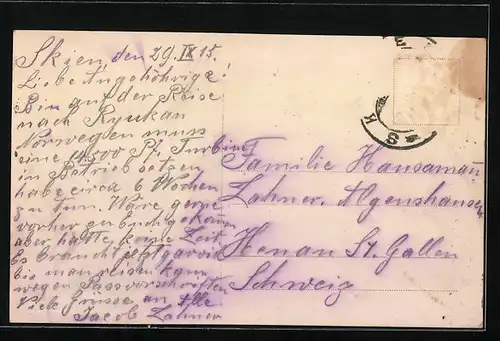 Skien, den 29. IX 15.
Liebe Angehörige!
Bin auf der Reise
nach Ryukan
Norwegen muss
eine 14500 Pf. Turbine
in Betrieb setzen
habe circa 6 Wochen
zu tun. Wäre gerne
vorher zu Euch gekommen
aber hatte keine Zeit.
Es braucht jetzt
bis man reisen kann
wegen Passvorschriften
Viele Grüsse an Alle
Jacob Lahner
Familie Hansamann
Lahner. Algenshausen
Henau St. Gallen
Schweiz
SK